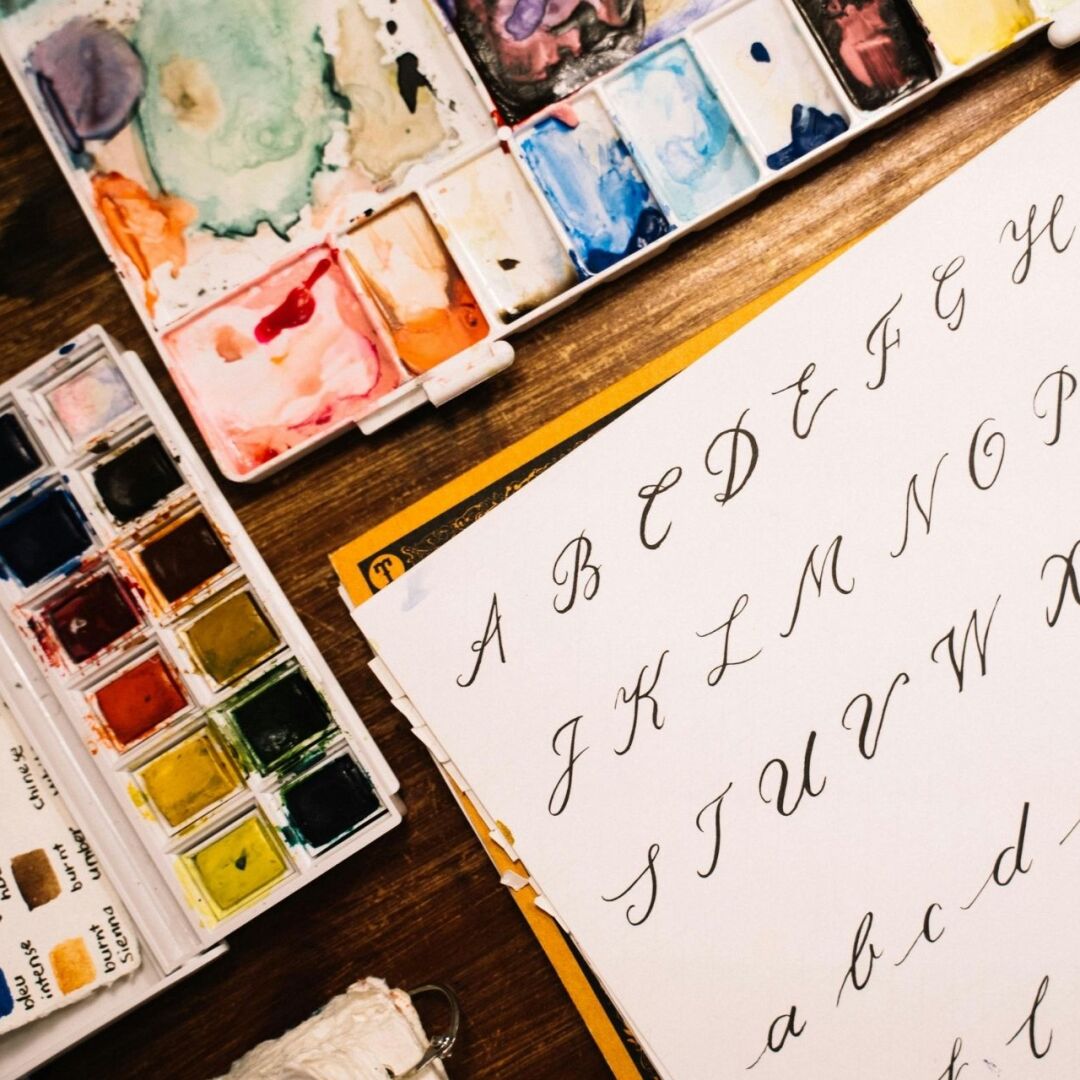 A B C D E F G H
J K L M N O P
S T U V W X
a b c d
l
T
Chinese
burnt
umber
bleu
intense
burnt
Sienna